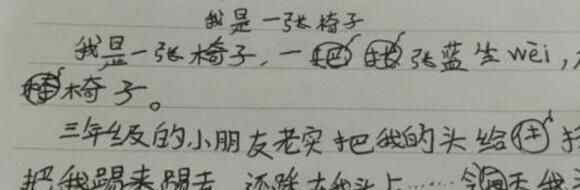 我是一张椅子
我是一张椅子,一把张蓝生wēi,
椅子。
三年级的小朋友老实把我的头给
把我踢来踢去,还踩在我头上……今天我